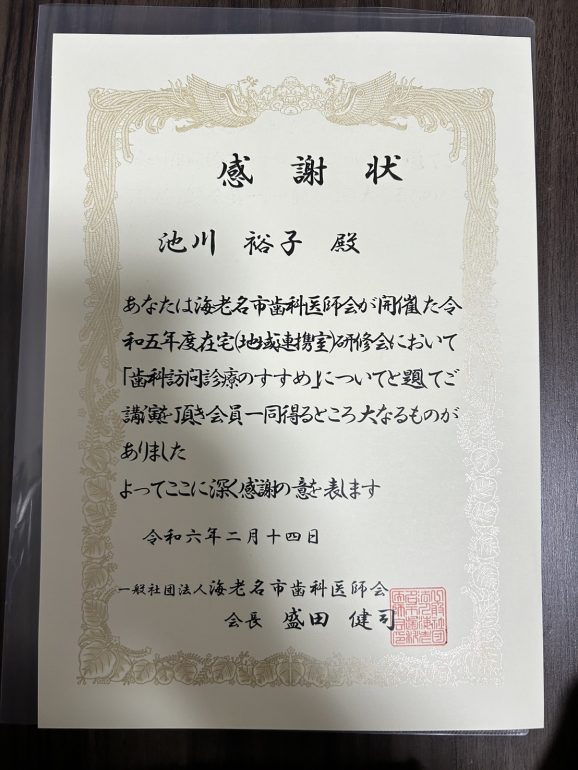 感謝状
池川 裕子 殿
あなたは海老名市歯科医師会が開催した令
和五年度在宅(地域連携室)研修会において
「歯科訪問診療のすすめ」についてと題してご
講演を頂き会員一同得るところ大なるものが
ありました
よってここに深く感謝の意を表します
令和六年二月十四日
一般社団法人海老名市歯科医師会
会長 盛田 健司